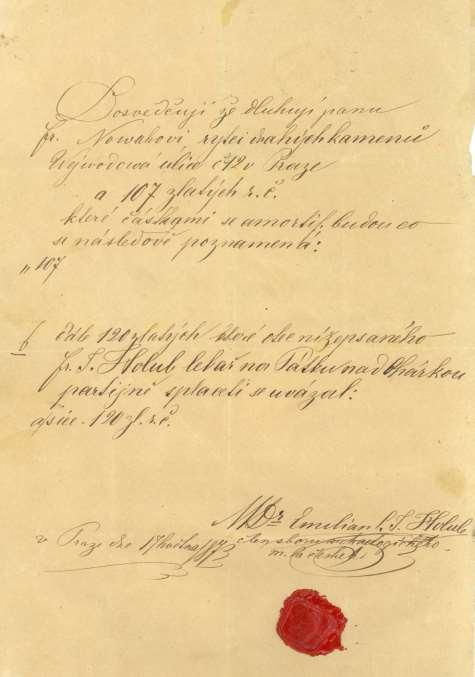 Dosvedčuji že dluhuji panu
fr. Nowakovi rytci drahých kamenů
ulica č 12 v Praze
a 107 zlatých r. č.
které částkami se amortis. budou co
se následově poznamená:
„107
b dále 120 zlatých které obe níže psaného
fr. S. Holub lekař na Pátku nad Ohárkou
partijně splaceti se uvázal:
120 zl. r. č.
MDr Emilian S. Holub
v Praze dne 17 května